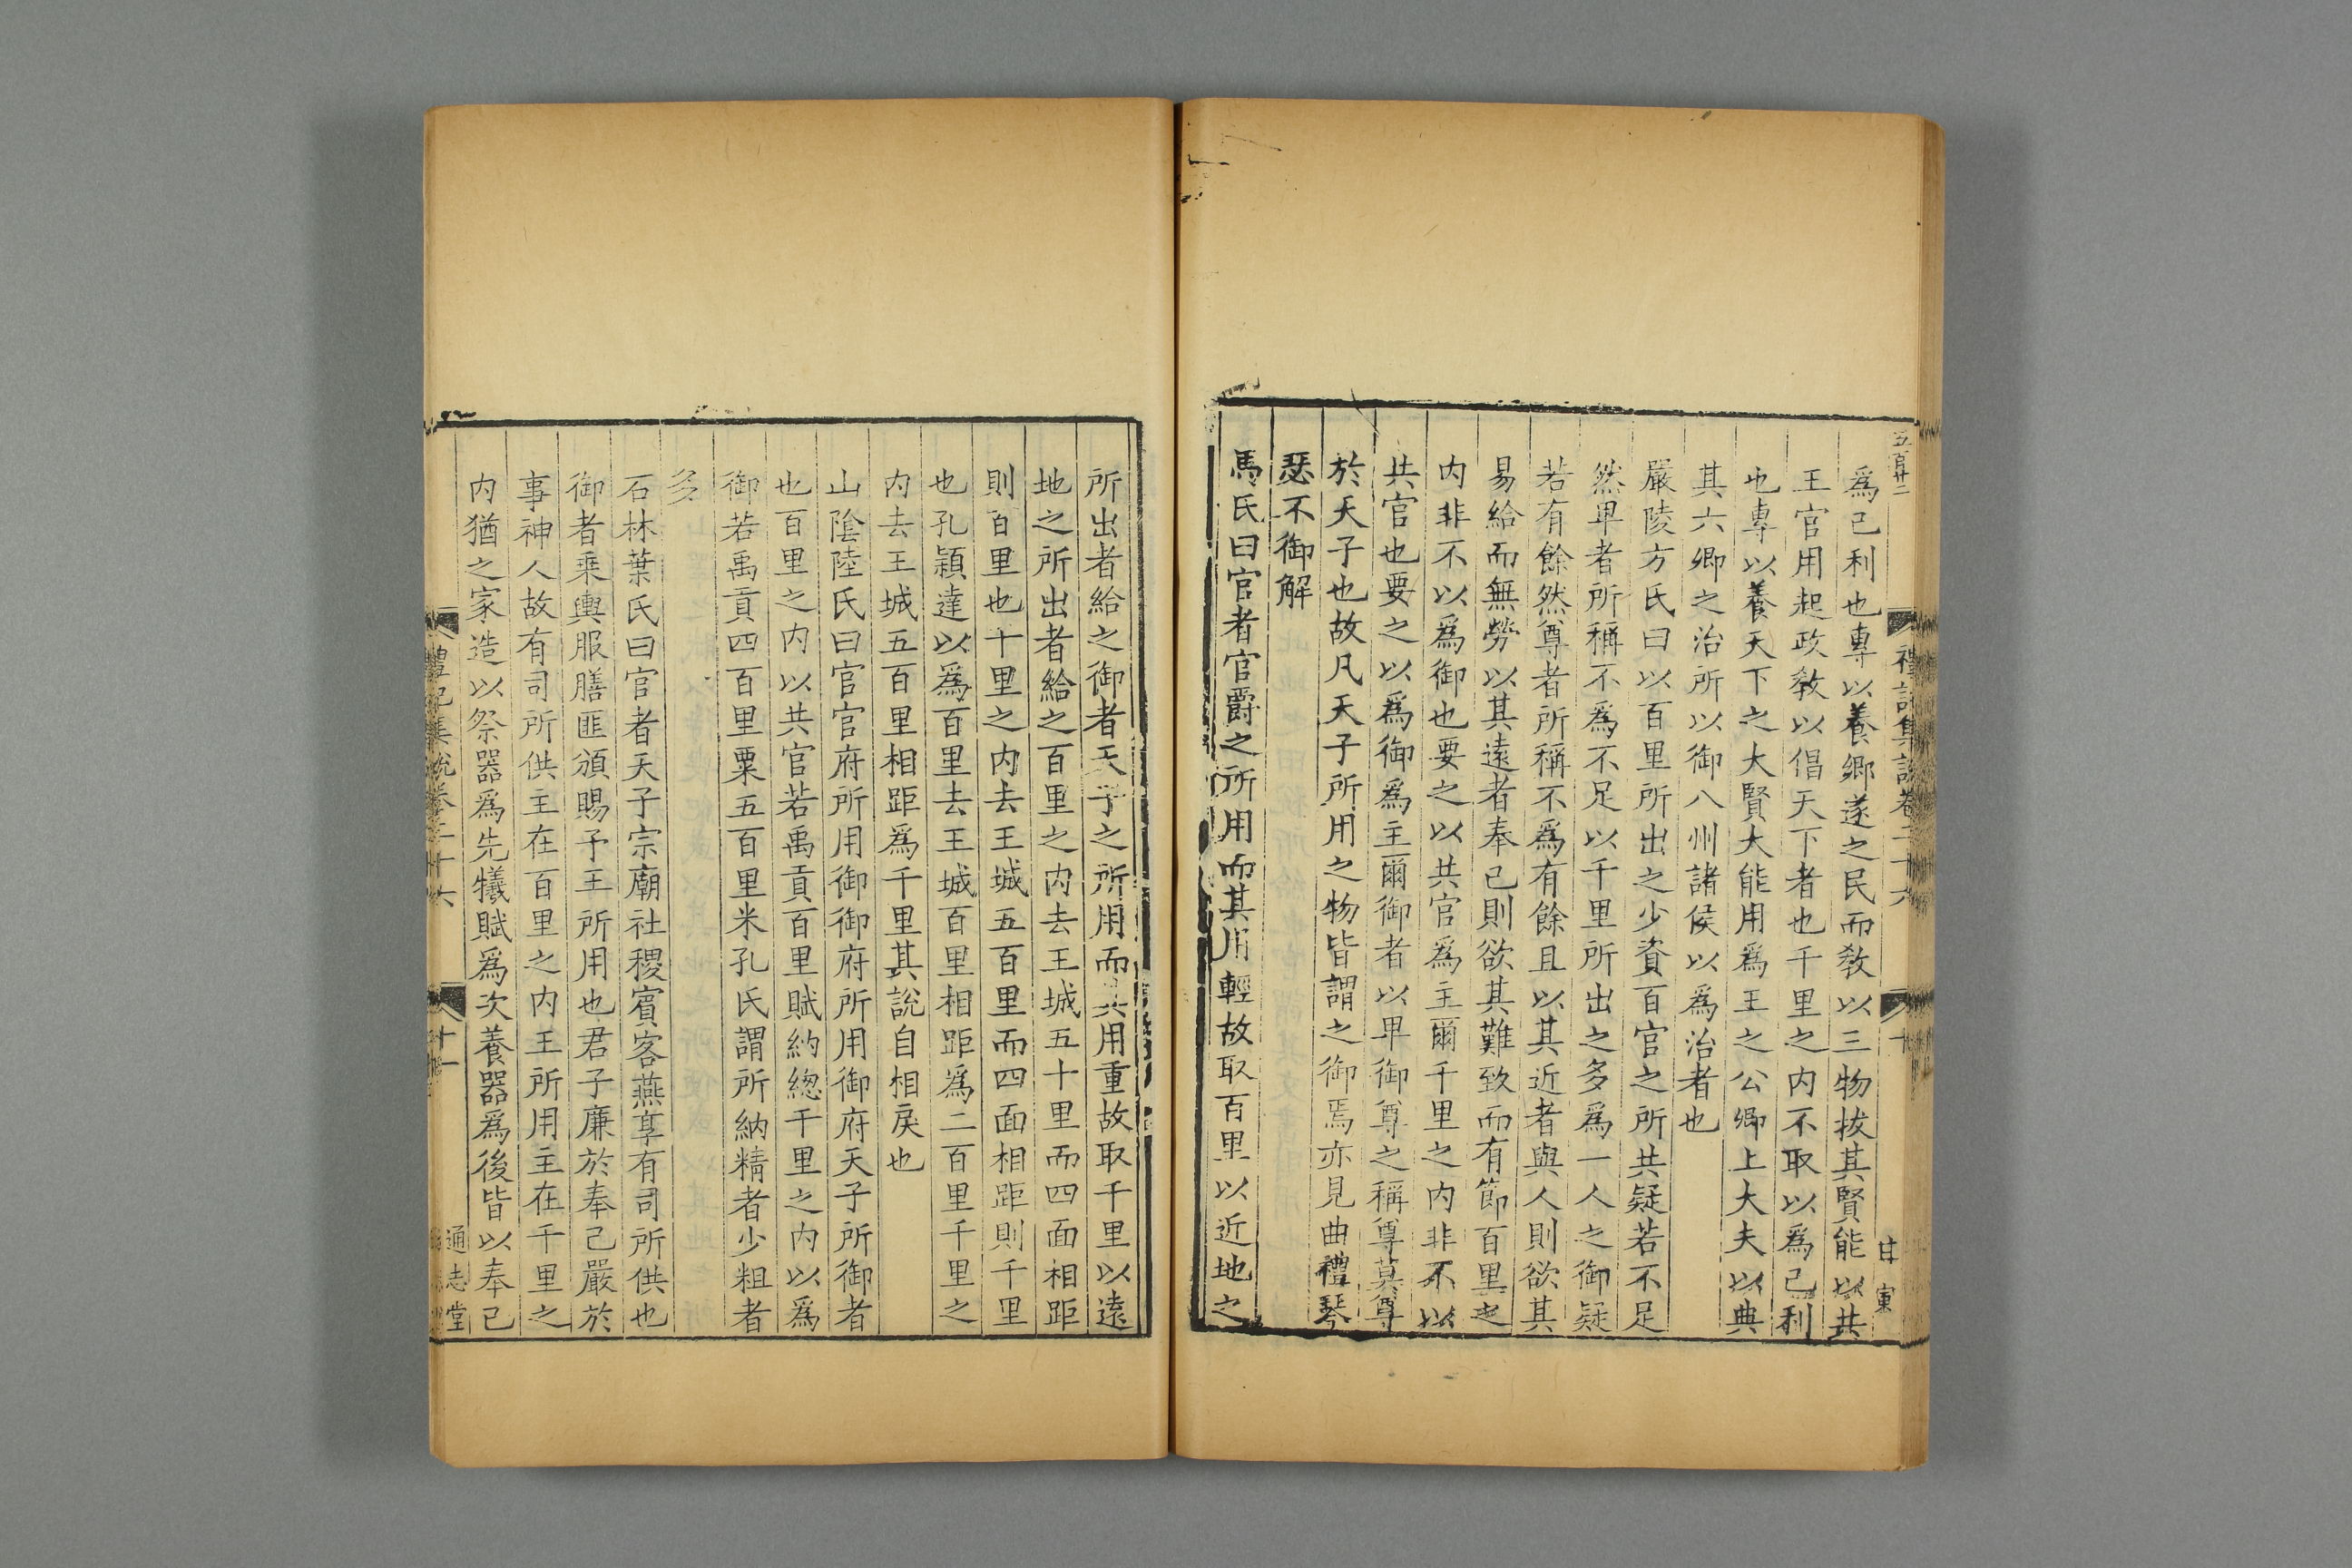 五百廿二
禮記集說卷二十六
十
甘寅
爲己利也專以養鄉遂之民而敎以三物拔其賢能以共
王官用起政敎以倡天下者也千里之内不取以爲己利
也專以養天下之大賢大能用爲王之公卿上大夫以典
其六卿之治所以御八州諸侯以爲治者也
嚴陵方氏曰以百里所出之少資百官之所共疑若不足
然卑者所稱不爲不足以千里所出之多爲一人之御疑
若有餘然尊者所稱不爲有餘且以其近者與人則欲其
易給而無勞以其遠者奉已則欲其難致而有節百里之
内非不以爲御也要之以共官爲主爾千里之内非不以
共官也要之以爲御爲主爾御者以卑御尊之稱尊莫尊
於天子也故凡天子所用之物皆謂之御焉亦見曲禮琴
瑟不御解
馬氏曰官者官爵之所用而其用輕故取百里以近地之
所出者給之御者天子之所用而其用重故取千里以遠
地之所出者給之百里之内去王城五十里而四面相距
則百里也千里之内去王城五百里而四面相距則千里
也孔穎達以爲百里去王城百里相距爲二百里千里之
内去王城五百里相距爲千里其說自相戾也
山陰陸氏曰官官府所用御御府所用御府天子所御者
也百里之内以共官若禹貢百里賦納緫千里之内以爲
御若禹貢四百里粟五百里米孔氏謂所納精者少粗者
多
石林葉氏曰官者天子宗廟社稷賓客燕享有司所供也
御者乘輿服膳匪頒賜予王所用也君子廉於奉己嚴於
事神人故有司所供主在百里之内王所用主在千里之
内猶之家造以祭器爲先犧賦爲次養器爲後皆以奉己
禮記集說卷二十六
十一
通志堂